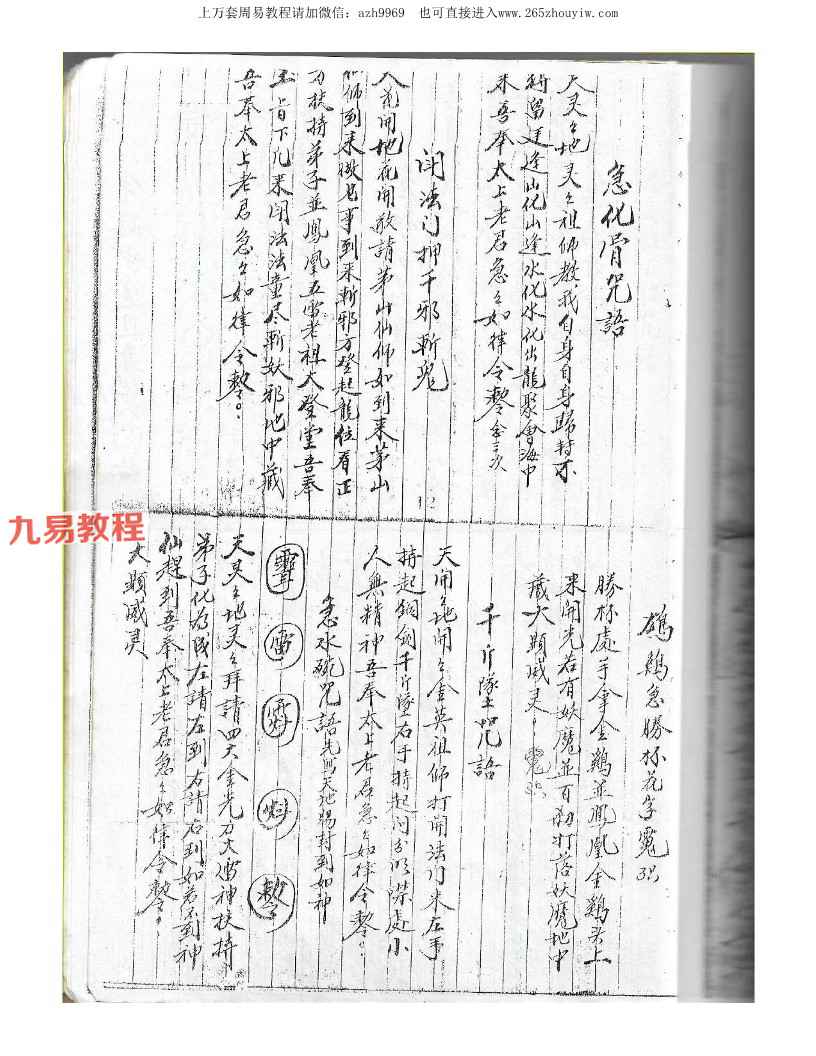 上万套周易教程请加微信：azh9969 也可直接进入www.265zhouyiw.com
急化骨咒語
天灵々地灵々祖师教我自身自身歸封不
留逢山化山逢水化水化出龍聚會海中
来吾奉太上老君急々如律令敕念三次
闭法门押千邪斬鬼
天花開地花開敬請茅山仙师如到来茅山
师到来做也事到来斬邪方登起龍位看正
扶持弟子並鳳凰五雷老祖大登堂吾奉
玉旨下凡来闭法法童尽斬妖邪地中藏
吾奉太上老君急々如律令敕。
12
鷄急勝杯花字
勝杯處手拿金鷄並鳳凰金鷄头上
来開光若有妖魔並百打落妖魔地中
藏大顯威灵
千斤隊咒語
天開々地開々金英祖师打開法门来左手
持起銅剑千斤隊右手持起处小
人無精神吾奉太上老君急々如律令敕。
急水碗咒語先写天地賜封到如神
雷
敕
天灵々地灵々拜請四大金光刀大雷神扶持
弟子化為成左請左到右請右到如若不到神
仙趕到吾奉太上老君急々如律令敕。
大顯威灵
九易教程